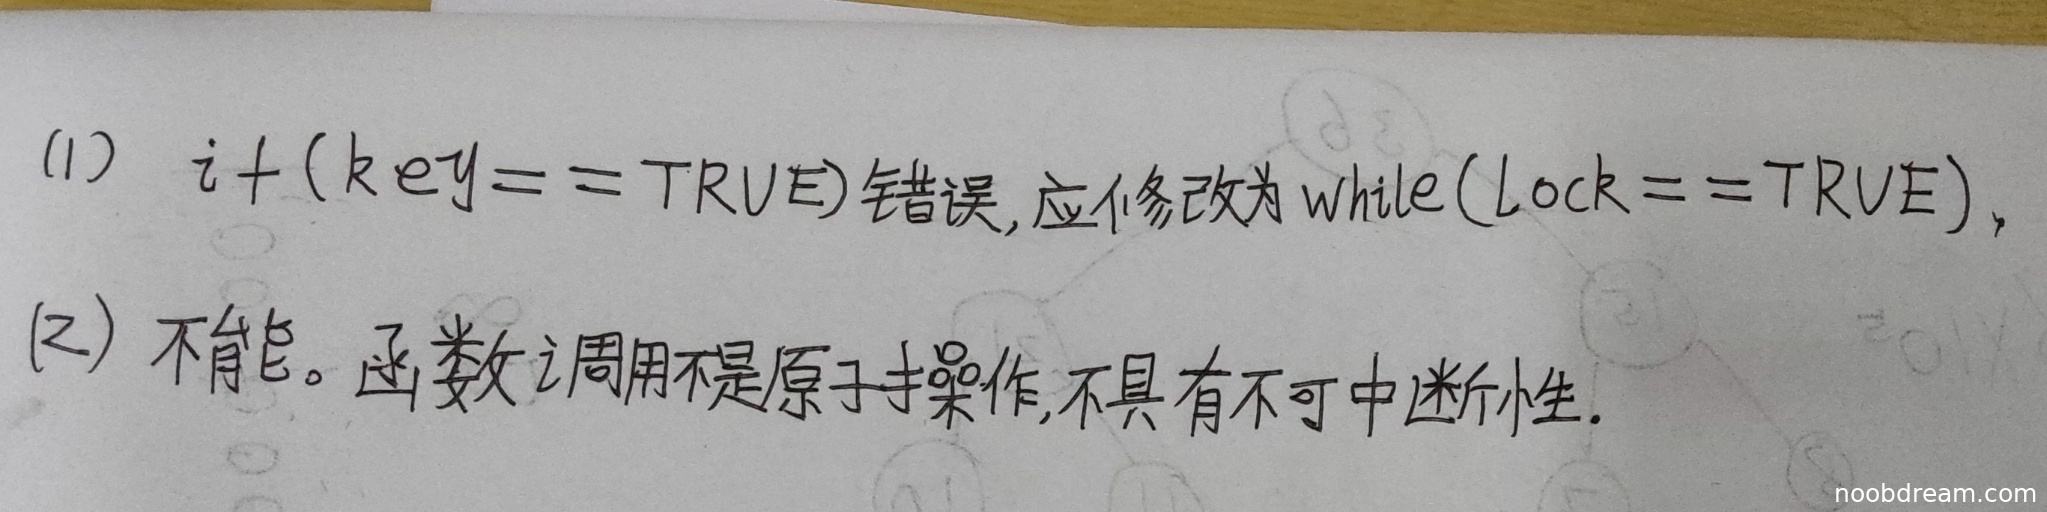 (1) if(key==TRUE)错误,应修改为while(Lock==TRUE),
(2)不能。函数调用不是原子操作,不具有不可中断性.
noobdream.com